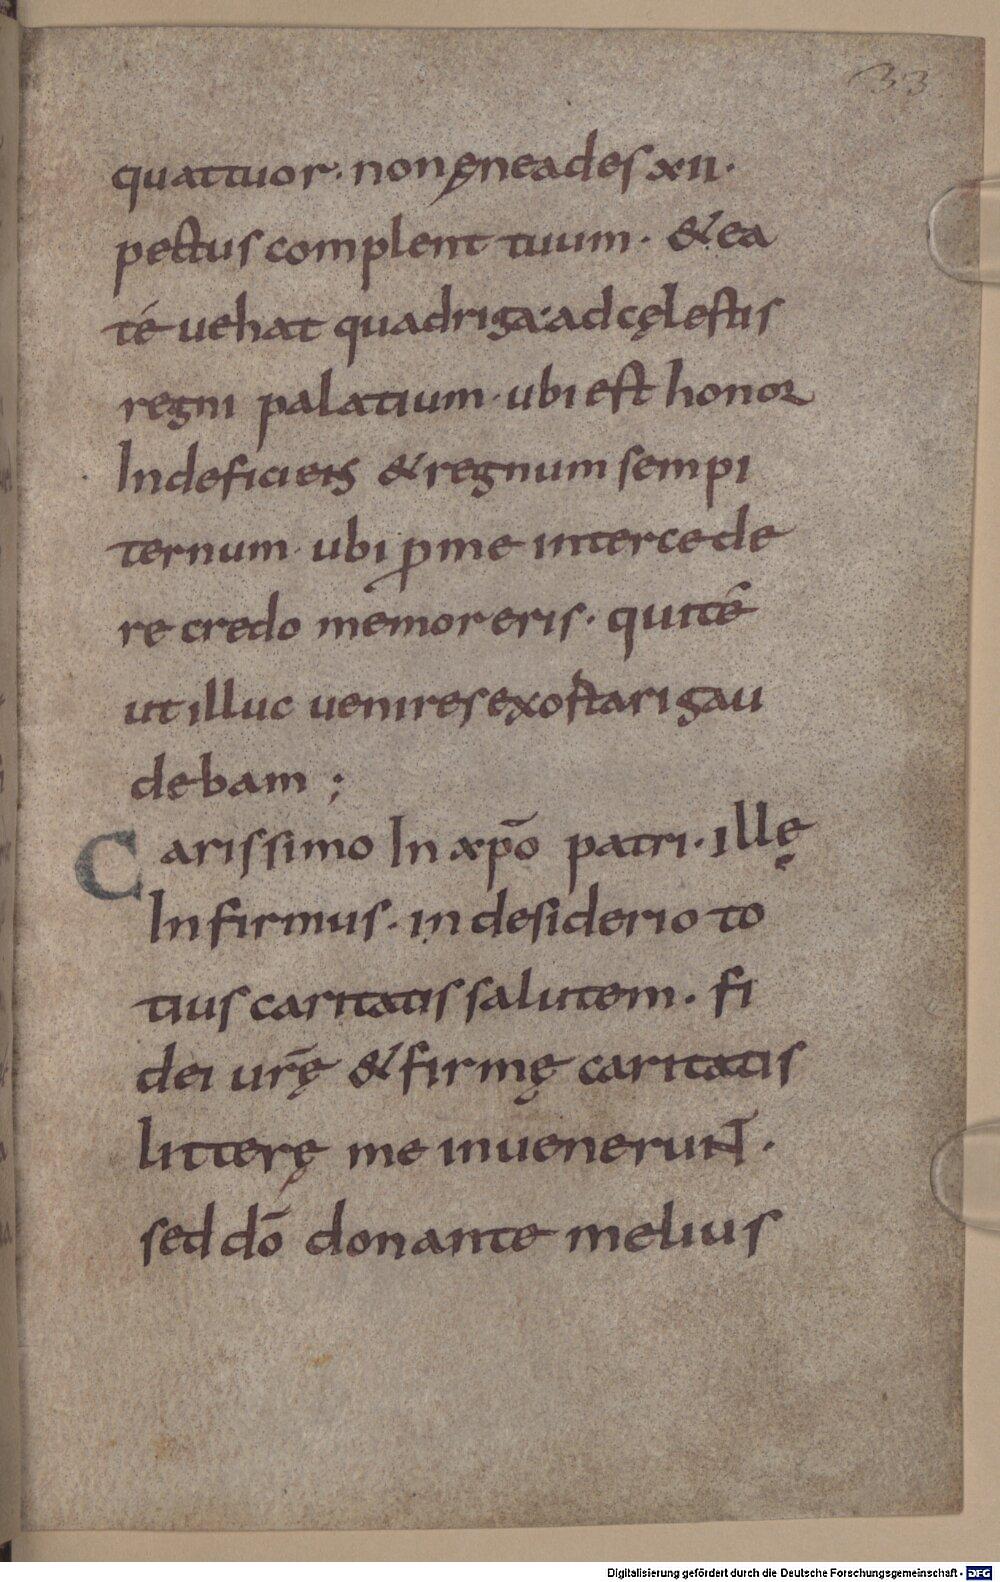 33
quattuor· non ęneades xii·
pectus complent tuum· & ea
té uehat quadriga· ad cęlestis
regni palatium· ubi est honor
Indeficiens & regnum sempi
ternum· ubi ꝓ me intercede
re credo memor eris· qui té
ut illuc uenires exostari gau
debam ;
Carissimo In xp̄o patri· illę
Infirmus· in desiderio to
tius caritatis salutem· fi
dei ur̄ę & firmę caritatis
litterę me inuenerunt·
sed dō donante melius
Digitalisierung gefördert durch die Deutsche Forschungsgemeinschaft - DFG